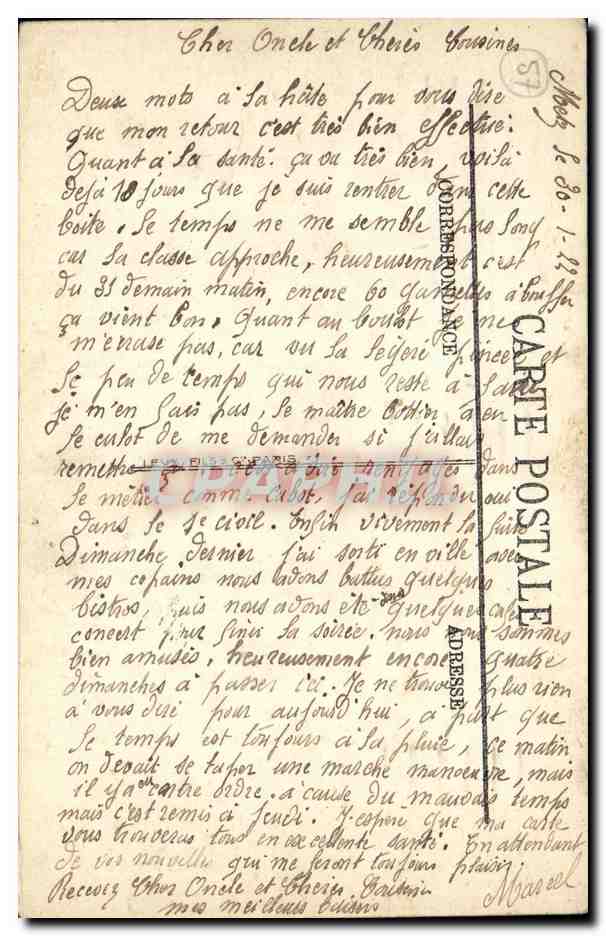 Metz le 30-1-22
57
Cher Oncle et Cheres Cousines
Deux mots à la hâte pour vous dire
que mon retour c'est très bien effectué.
Quant à la santé. ça va très bien, voilà
déjà 18 jours que je suis rentrer dans cette
boite. le temps ne me semble pas long
car la classe approche, heureusement c'est
du 31 demain matin, encore 60 gamelles à bouffer
ça vient bon. Quant au boulot je ne
m'ecrase pas, car vu la légère pincée et
le peu de temps qui nous reste à faire
je m'en fais pas, le maître bottier a eu
le culot de me demander si j'allais
remettre ça dire rengager dans
le métier comme cabot. j'ai répondu oui
dans le 1e civil. Enfin vivement la fuite
Dimanche dernier j'ai sorti en ville avec
mes copains nous avons battus quelques
bistros, puis nous avons été quelque café
concert pour finir la soirée. nous nous sommes
bien amusés, heureusement encore quatre
dimanches à passer ici. Je ne trouve plus rien
à vous dire pour aujourd'hui, a part que
le temps est toujours à la pluie, ce matin
on devait se taper une marche manoeuvre, mais
il y a eu contre ordre. à cause du mauvais temps
mais c'est remis à jeudi. J'espère que ma carte
vous trouveras tous en excellente santé. En attendant
de vos nouvelles qui me feront toujours plaisir.
Recevez Cher Oncle et Cheres Cousines
mes meilleurs baisers
Marcel
CARTE POSTALE
CORRESPONDANCE
ADRESSE
LEVY FILS & Cie PARIS
CPAPHIL